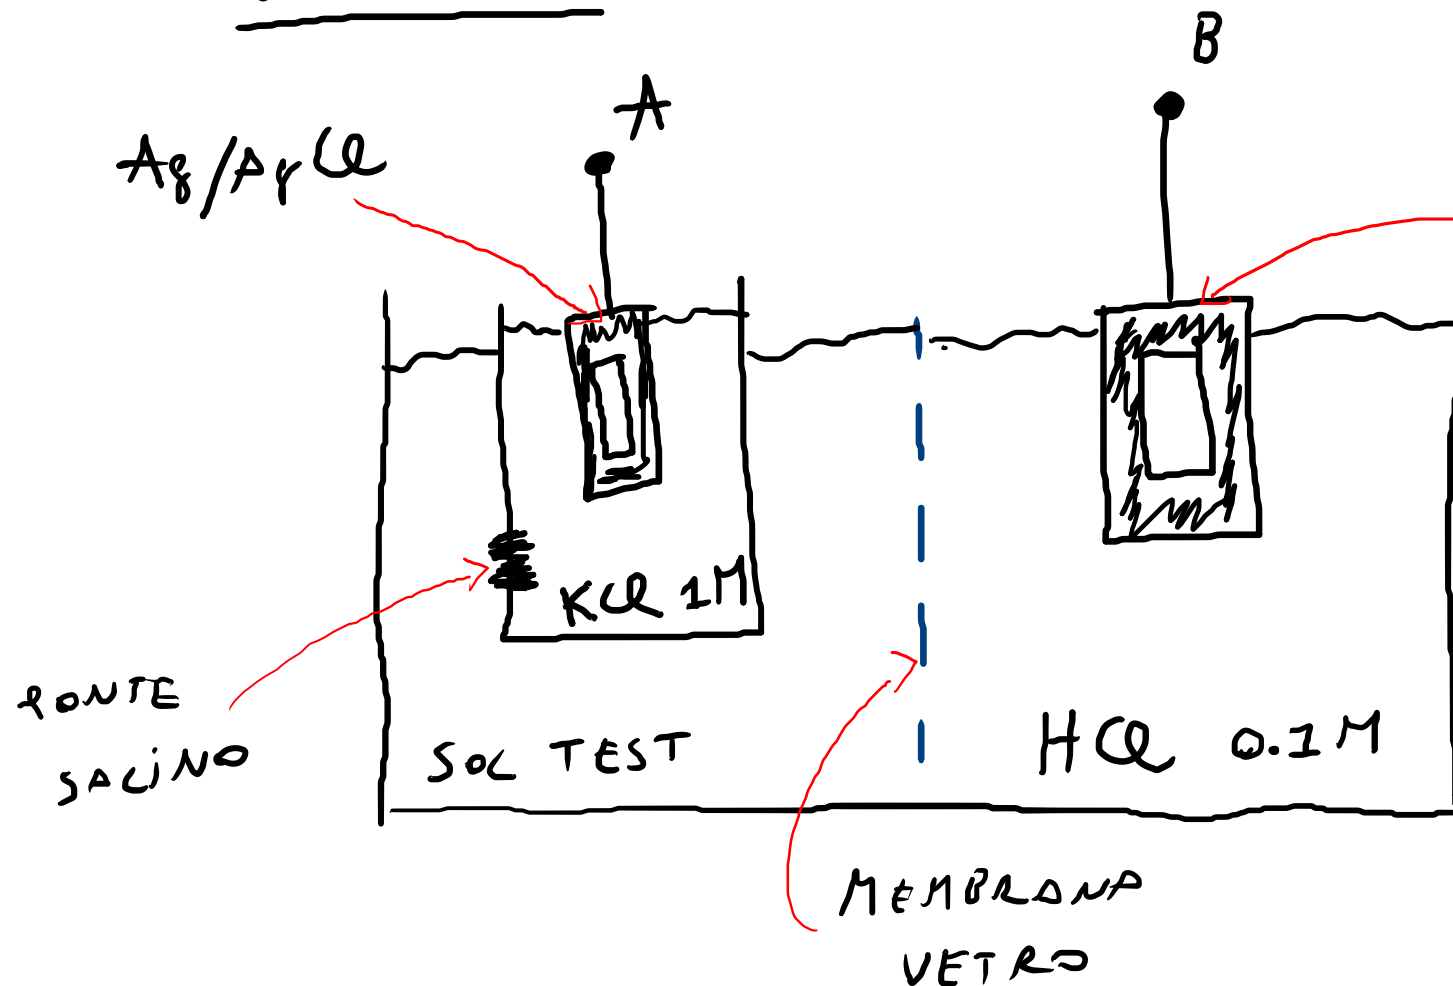 B
A
Ag/AgCl
KCl 1M
PONTE
SALiNO
SOL TEST
HCl 0.1M
MEMBRANA
VETRO